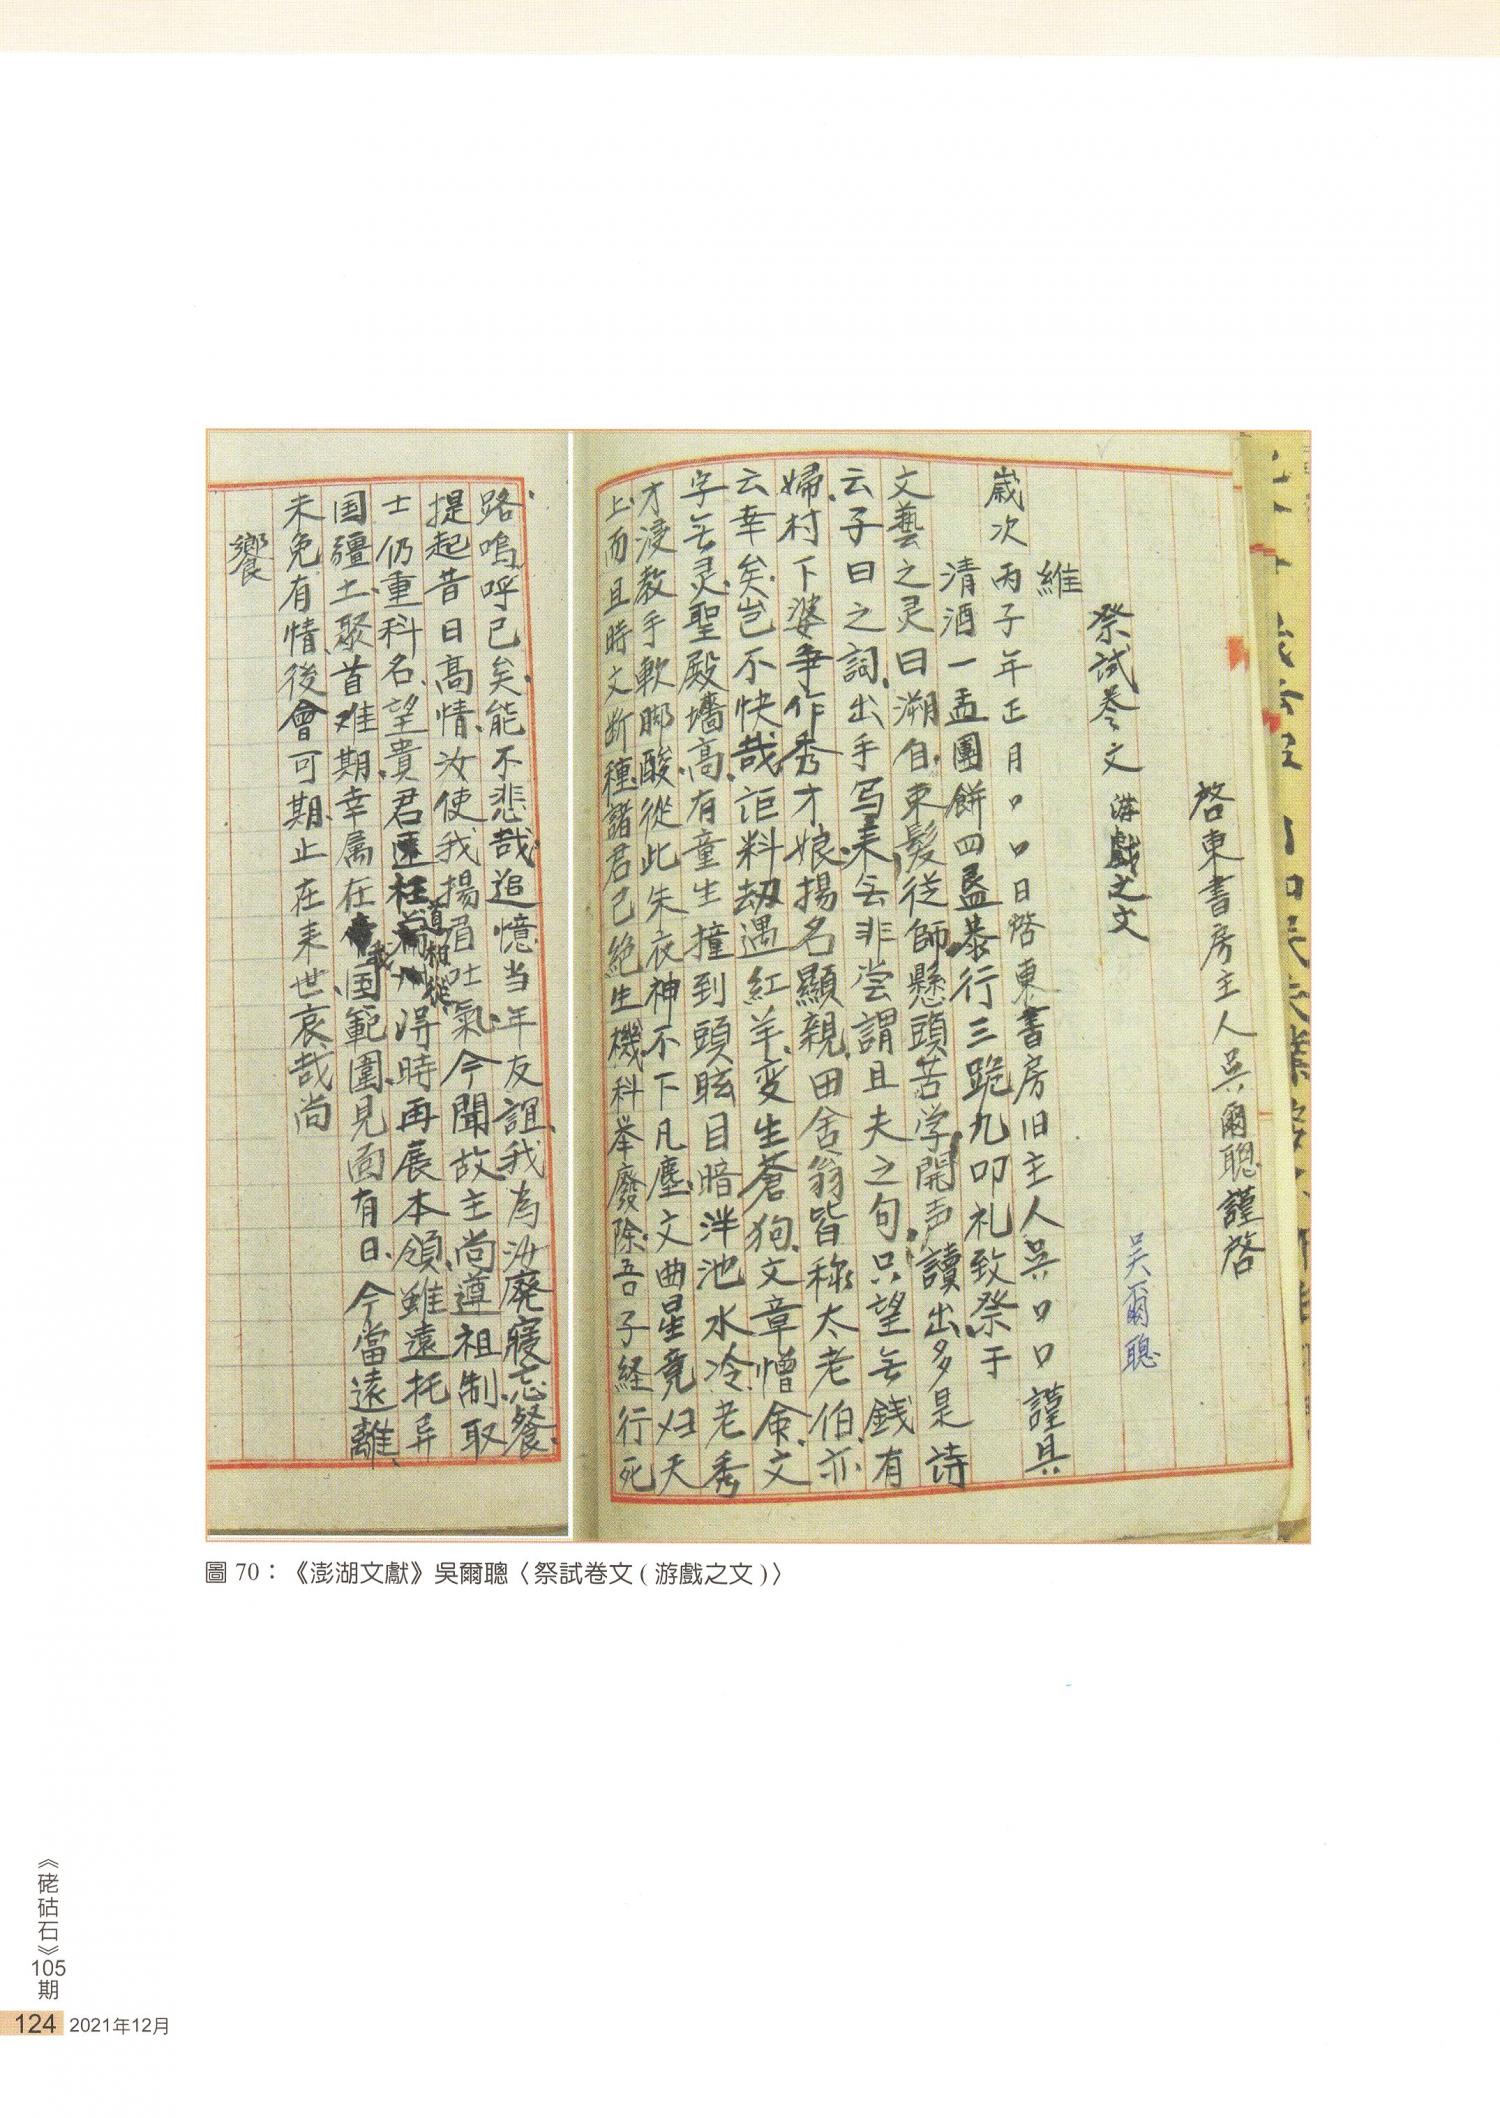 啓東書房主人吳爾聰謹啓
祭試卷文 游戲之文
吴爾聰
維
歲次丙子年正月口口日啓東書房旧主人吳口口謹具
清酒一盂團餅四盏恭行三跪九叩礼致祭于
文藝之灵曰溯自束髮從師懸頭苦学開声讀出多是诗
云子曰之詞出手写来無非尝謂且夫之句只望無銭有
婦村下婆争作秀才娘揚名顯親田舍翁皆称太老伯亦
云幸矣岂不快哉詎料劫遇紅羊变生蒼狗文章憎命文
字無灵聖殿墻高有童生撞到頭眩目暗泮池水冷老秀
才浸教手軟脚酸從此朱衣神不下凡塵文曲星竟归天
上而且時文断種諸君已絶生機科举廢除吾子経行死
路嗚呼已矣能不悲哉追憶当年友誼我為汝廃寝忘餐
提起昔日高情汝使我揚眉吐氣今聞故主尚遵祖制取
士仍重科名望貴君匯枉道相從得時再展本領雖遠托异
国疆土聚首难期幸属在我国範圍見面有日今當遠離
未免有情後會可期止在来世哀哉尚
饗
圖 70：《澎湖文獻》吳爾聰〈祭試卷文(游戲之文)〉
《硓𥑮石》105期
124 2021年12月